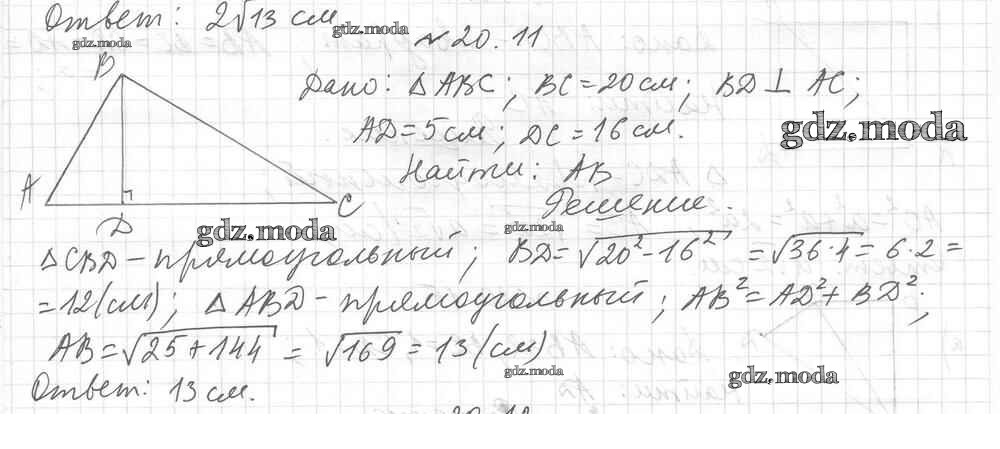 Ответ: 2√13 см
gdz.moda
gdz.moda
№ 20.11
B
Дано: △ABC; BC=20см; BD⊥AC;
AD=5см; DC=16см.
gdz.moda
Найти: AB
A
C
D
Решение.
gdz.moda
gdz.moda
△CBD-прямоугольный; BD=√20²-16² =√36·4=6·2=
=12(см); △ABD-прямоугольный; AB²=AD²+BD²;
AB=√25+144 = √169=13(см)
gdz.moda
gdz.moda
Ответ: 13 см.